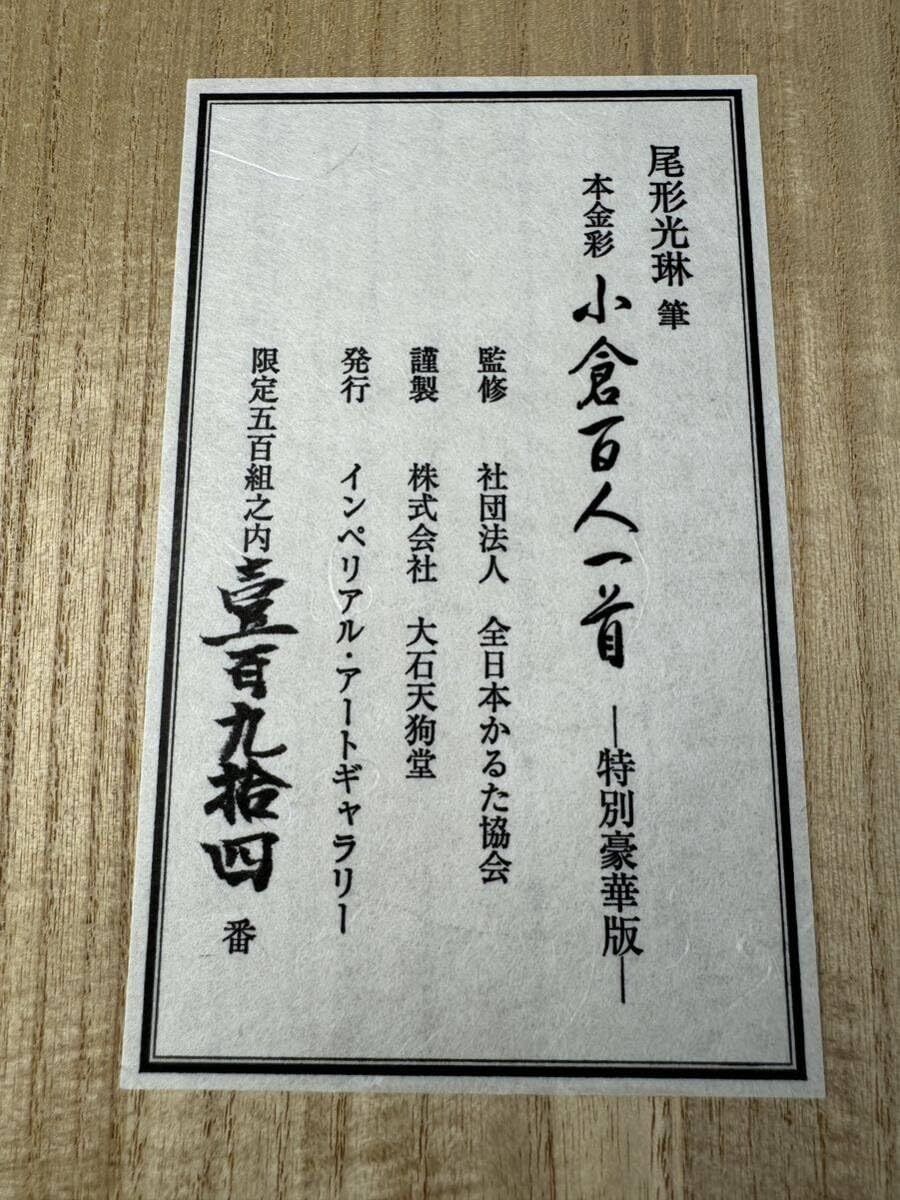 尾形光琳 筆
本金彩 小倉百人一首 ―特別豪華版―
監修 社団法人 全日本かるた協会
謹製 株式会社 大石天狗堂
発行 インペリアル・アートギャラリー
限定五百組之内 壹百九拾四 番